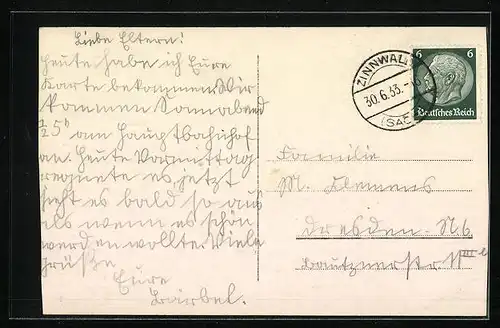 Liebe Eltern!
Heute habe ich Eure
Karte bekommen. Wir
kommen Sonnabend
1/2 5h am Hauptbahnhof
an. Heute Vormittag
regnete es, jetzt
sieht es bald so aus
als wenn es schön
werden wollte. Viele
Grüße
Eure
Bärbel.
ZINNWALD
30.6.33.
6 6
Deutsches Reich
Familie
M. Klemens
Dresden-N.6
Bautznerstr.